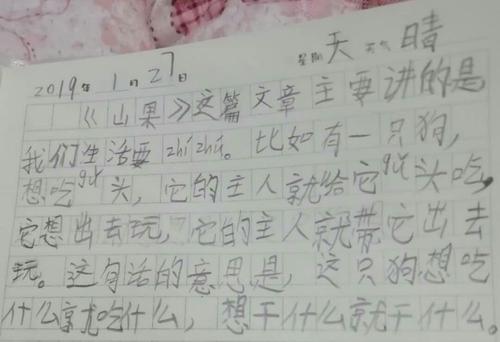 2019年1月27日 星期天 天气晴
《山果》这篇文章主要讲的是
我们生活要zhī zhú。比如有一只狗,
想吃gǔ头,它的主人就给它gǔ头吃,
它想出去玩,它的主人就带它出去
玩。这句话的意思是,这只狗想吃
什么就吃什么,想干什么就干什么。